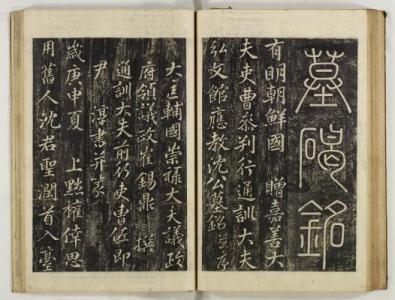 墓碣銘
有明朝鮮國　贈嘉善大
夫吏曹參判行通訓大夫
弘文館應教沈公墓銘并序
大匡輔國崇祿大夫議政
府領議政崔錫鼎　撰
通訓大夫前行吏曹佐郎
尹　淳書并篆
歲庚申夏　上黜權倖思
用舊人沈君聖潤首入臺